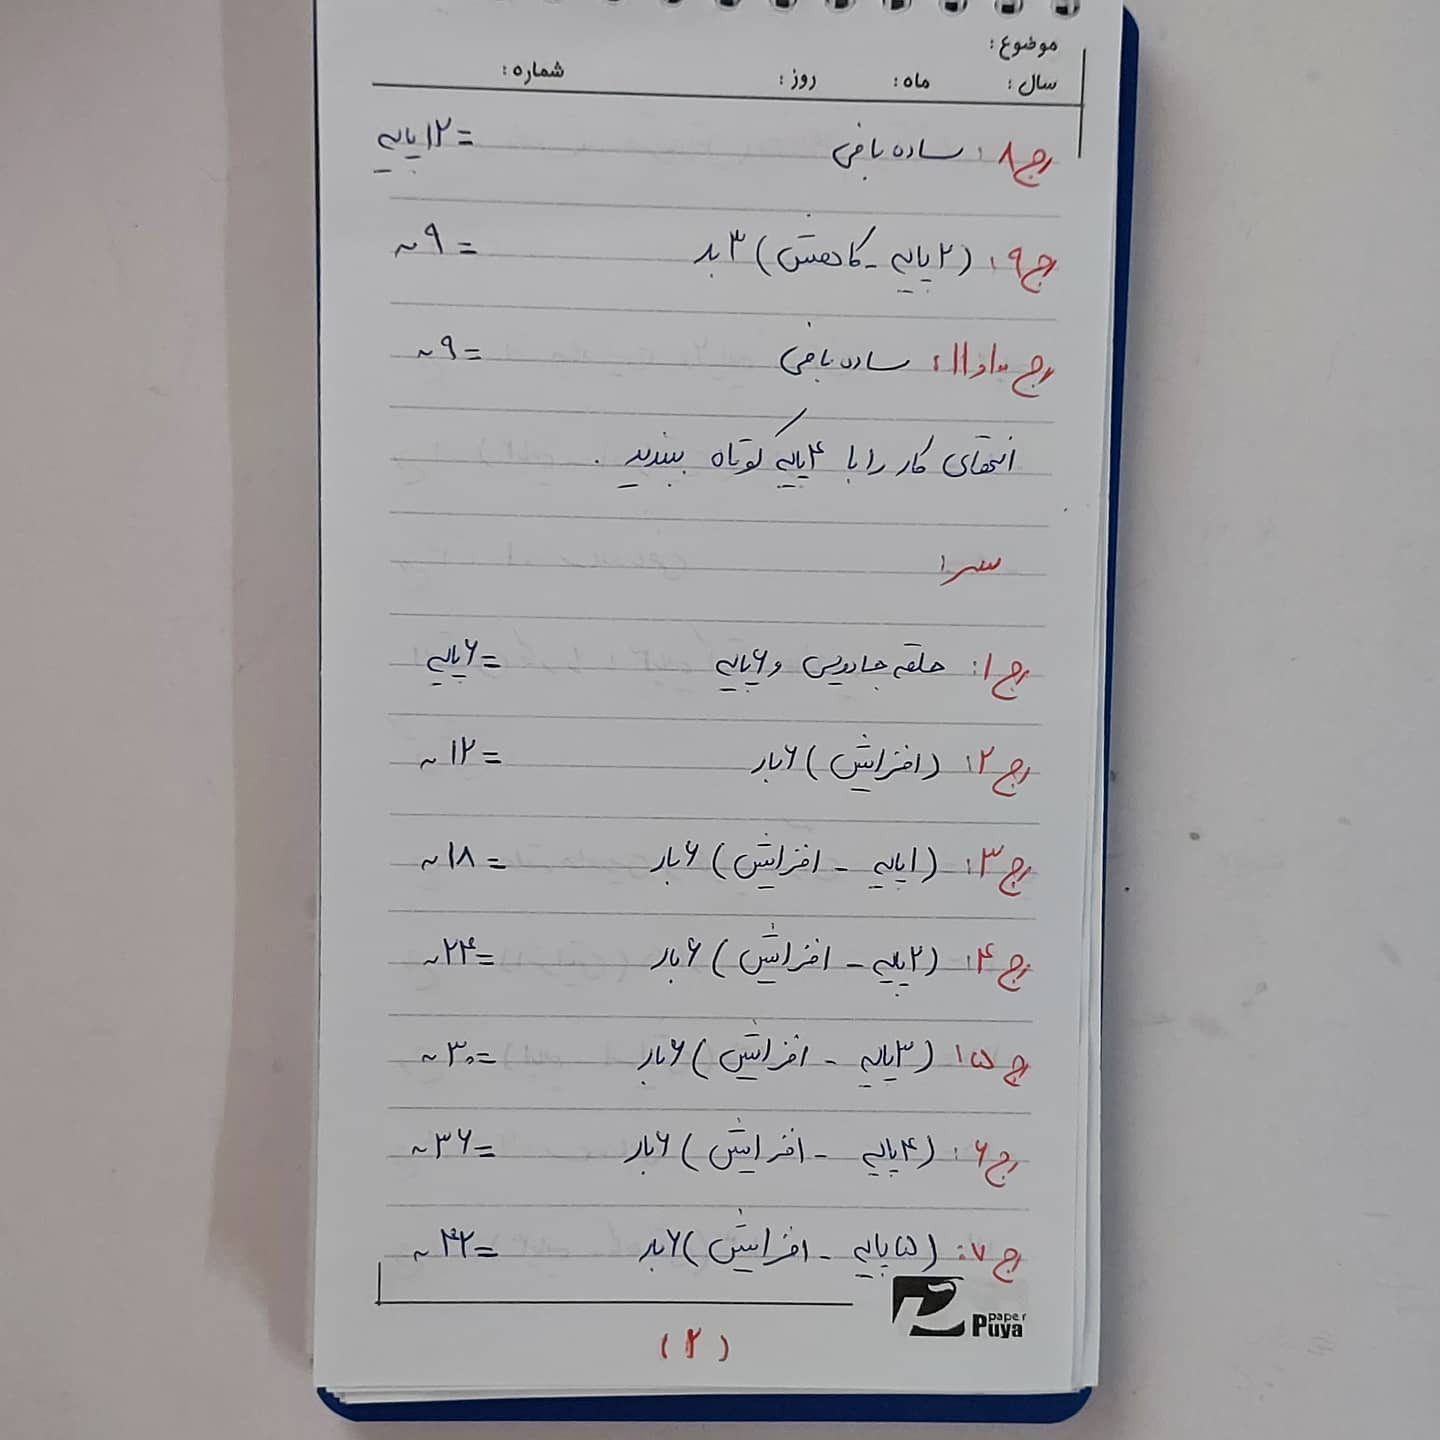 موضوع:
سال: ماه: روز: شماره:
رج ۸: ساده بافی =۱۲ پایه
رج ۹: (۲ پایه - کاهش) ۳ بار = ۹ ~
رج ۱۰ و ۱۱: ساده بافی = ۹ ~
انتهای کار را با ۴ پایه کوتاه ببندید.
سر:
رج ۱: حلقه جادویی و ۶ پایه = ۶ پایه
رج ۲: (افزایش) ۶ بار = ۱۲ ~
رج ۳: (۱ پایه - افزایش) ۶ بار = ۱۸ ~
رج ۴: (۲ پایه - افزایش) ۶ بار = ۲۴ ~
رج ۵: (۳ پایه - افزایش) ۶ بار = ۳۰ ~
رج ۶: (۴ پایه - افزایش) ۶ بار = ۳۶ ~
رج ۷: (۵ پایه - افزایش) ۶ بار = ۴۲ ~
paper
Puya
(۲)